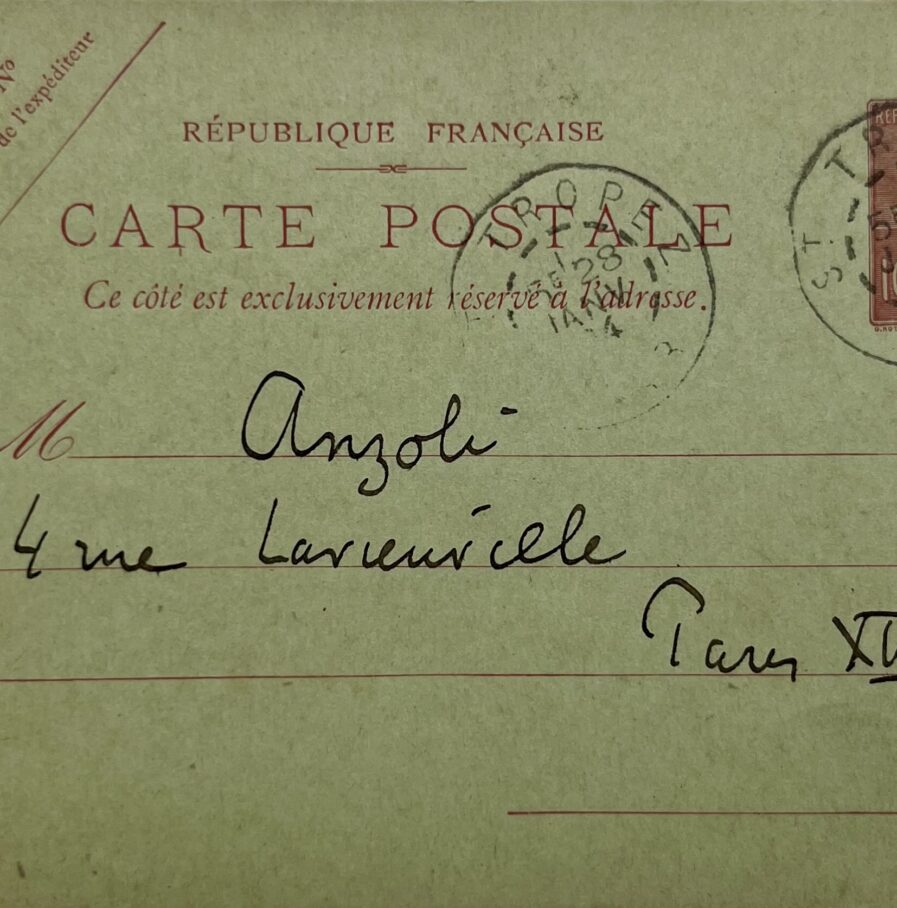 No
de l'expéditeur
RÉPUBLIQUE FRANÇAISE
CARTE POSTALE
Ce côté est exclusivement réservé à l'adresse.
TROPEZ
28
JANV
4
ST TR
10
M Anzoli
4 rue Lavieuville
Paris